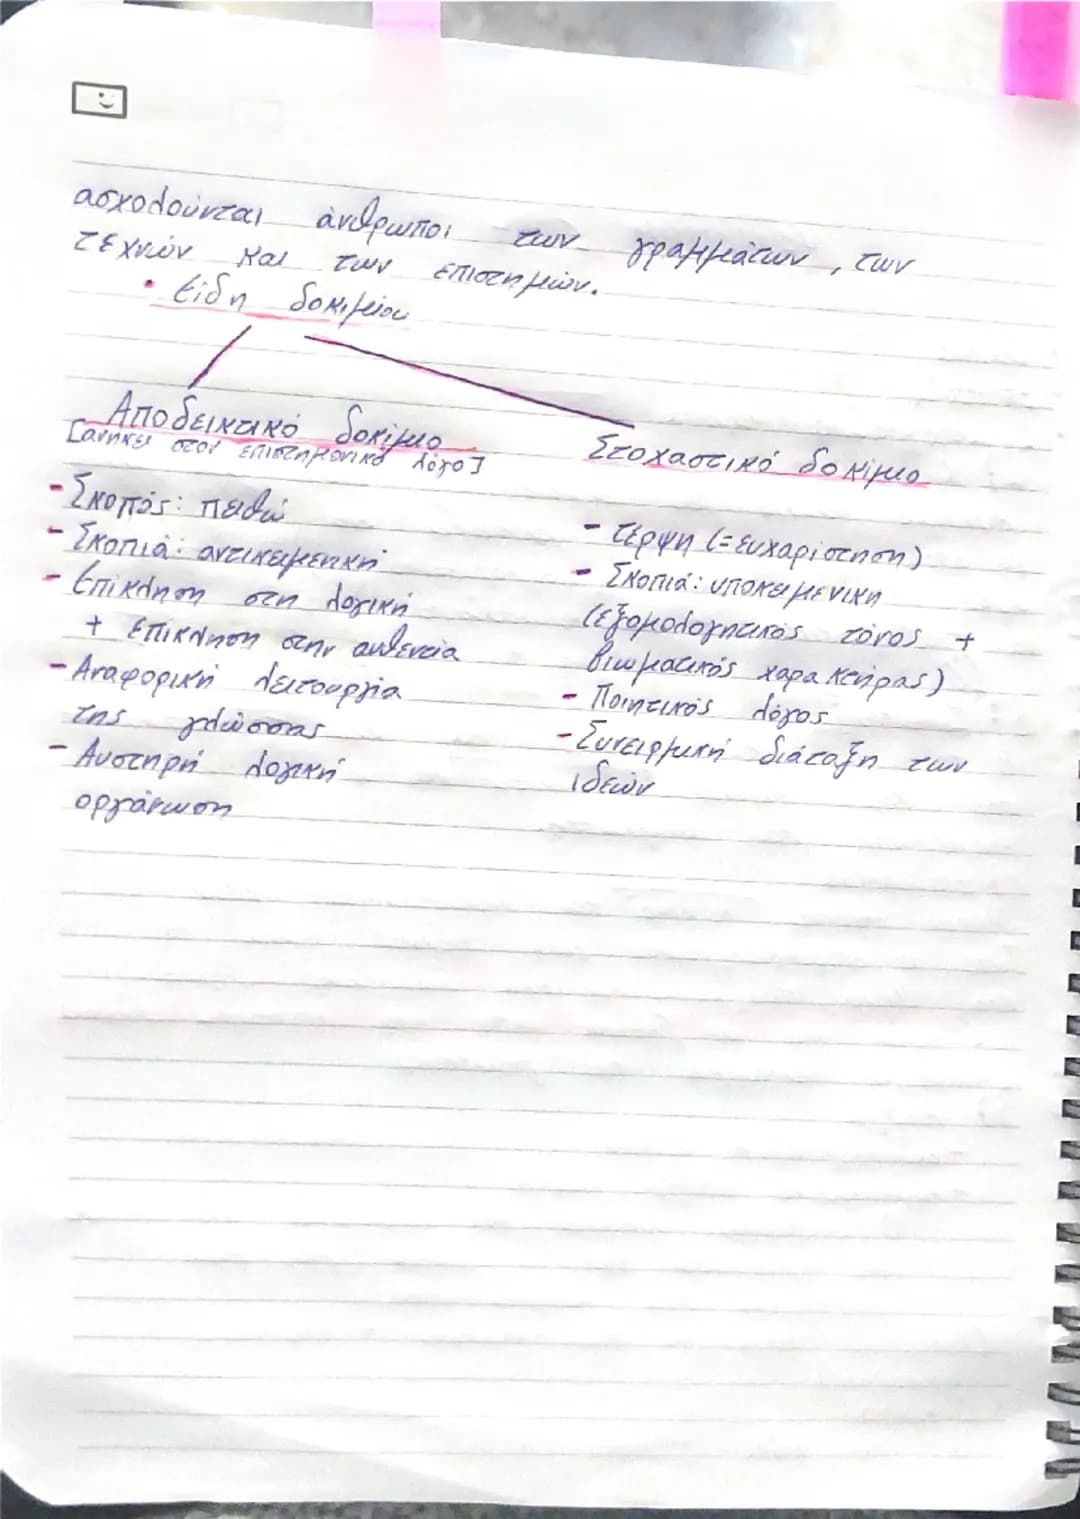 ασχολούνται άνθρωποι των γραμμάτων, των
τεχνών και των επιστημών.
• Είδη δοκιμίου
Αποδεικτικό δοκίμιο
[ανήκει στον επιστημονικό λόγο]
- Σκοπός: πειθώ
- Σκοπιά: αντικειμενική
- Επίκληση στη λογική
+ Επίκληση στην αυθεντία
- Αναφορική λειτουργία
της γλώσσας
- Αυστηρή λογική
οργάνωση
Στοχαστικό δοκίμιο
- τέρψη (= ευχαρίστηση)
- Σκοπιά: υποκειμενικη
(εξομολογητικός τόνος +
βιωματικός χαρακτήρας)
- Ποιητικός λόγος
- Συνειρμική διάταξη των
ιδεών